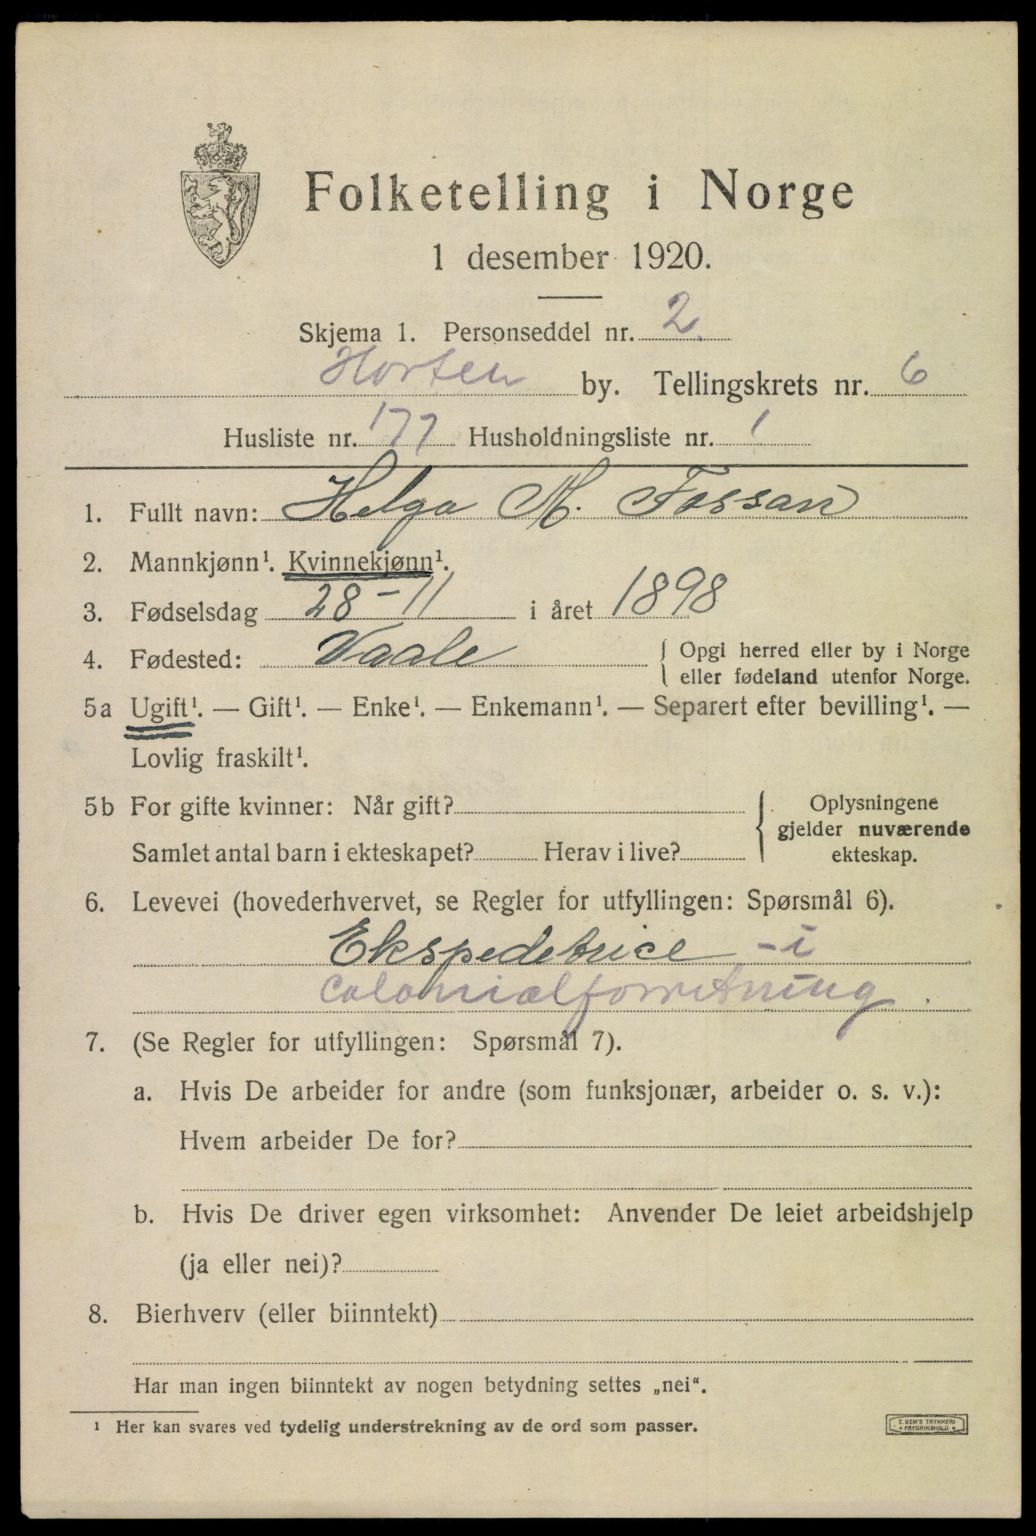 Folketelling i Norge
1 desember 1920.
Skjema 1. Personseddel nr. 2
Horten by. Tellingskrets nr. 6
Husliste nr. 177 Husholdningsliste nr. 1
1. Fullt navn: Helga M. Fossan
2. Mannkjønn¹. Kvinnekjønn¹.
3. Fødselsdag 28-11 i året 1898
4. Fødested: Vaale { Opgi herred eller by i Norge
eller fødeland utenfor Norge.
5a Ugift¹. — Gift¹. — Enke¹. — Enkemann¹. — Separert efter bevilling¹. —
Lovlig fraskilt¹.
5b For gifte kvinner: Når gift?
Samlet antal barn i ekteskapet? Herav i live?
{ Oplysningene
gjelder nuværende
ekteskap.
6. Levevei (hovederhvervet, se Regler for utfyllingen: Spørsmål 6).
Ekspedetrice - i
Colonialforretning.
7. (Se Regler for utfyllingen: Spørsmål 7).
a. Hvis De arbeider for andre (som funksjonær, arbeider o. s. v.):
Hvem arbeider De for?
b. Hvis De driver egen virksomhet: Anvender De leiet arbeidshjelp
(ja eller nei)?
8. Bierhverv (eller biinntekt)
Har man ingen biinntekt av nogen betydning settes „nei“.
¹ Her kan svares ved tydelig understrekning av de ord som passer.
E. SEM'S TRYKKERI
FREDRIKSHALD